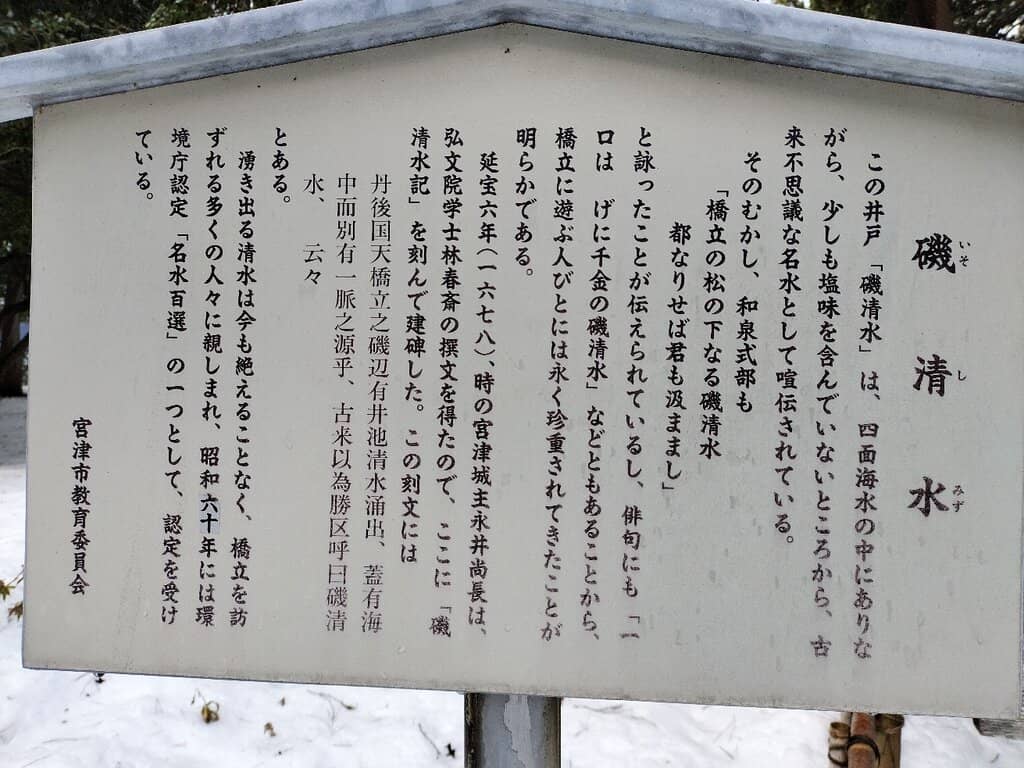 磯清水
いそしみず
この井戸「磯清水」は、四面海水の中にありな
がら、少しも塩味を含んでいないところから、古
来不思議な名水として喧伝されている。
そのむかし、和泉式部も
「橋立の松の下なる磯清水
都なりせば君も汲ままし」
と詠ったことが伝えられているし、俳句にも「一
口は　げに千金の磯清水」などともあることから、
橋立に遊ぶ人びとには永く珍重されてきたことが
明らかである。
延宝六年(一六七八)、時の宮津城主永井尚長は、
弘文院学士林春斎の撰文を得たので、ここに「磯
清水記」を刻んで建碑した。この刻文には
丹後国天橋立之磯辺有井池清水涌出、蓋有海
中而別有一脈之源乎、古来以為勝区呼曰磯清
水、　云々
とある。
湧き出る清水は今も絶えることなく、橋立を訪
ずれる多くの人々に親しまれ、昭和六十年には環
境庁認定「名水百選」の一つとして、認定を受け
ている。
宮津市教育委員会